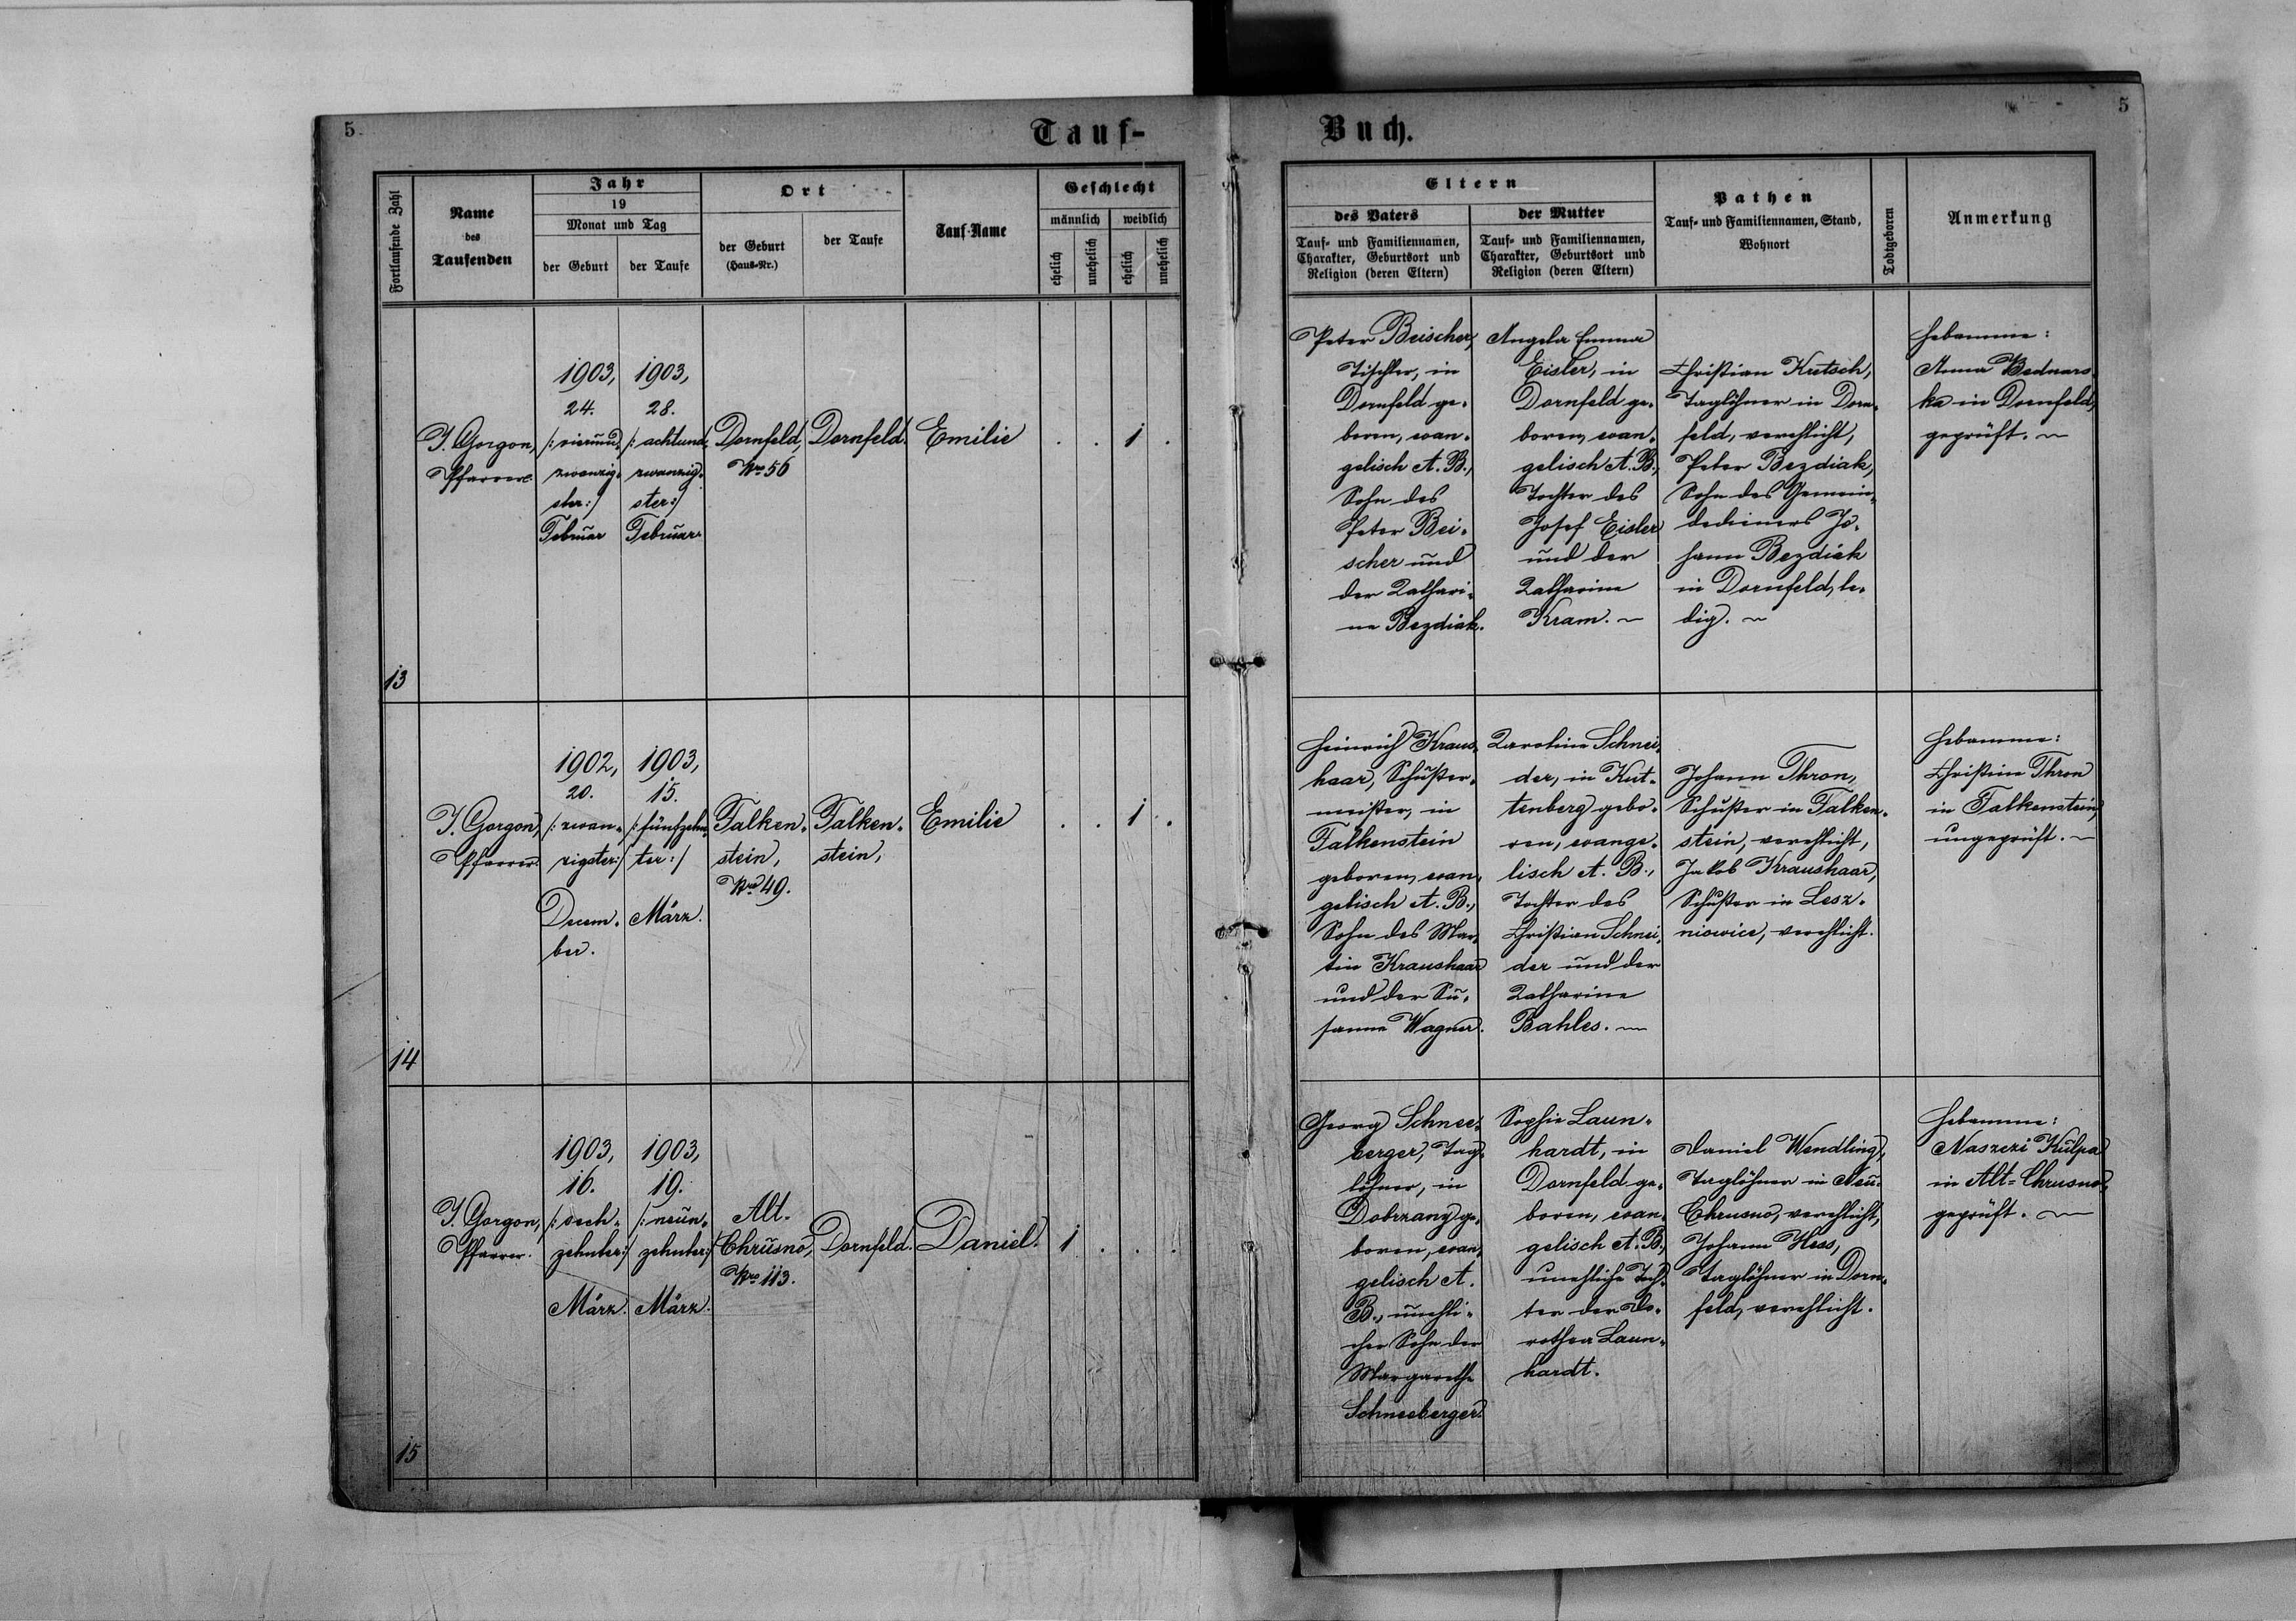 5
Tauf-
Buch.
5
Fortlaufende Zahl
Name
des
Taufenden
Jahr
19
Monat und Tag
der Geburt
der Taufe
Ort
der Geburt
(Haus-Nr.)
der Taufe
Tauf-Name
Geschlecht
männlich
weiblich
ehelich
unehelich
ehelich
unehelich
Eltern
des Vaters
Tauf- und Familiennamen,
Charakter, Geburtsort und
Religion (deren Eltern)
der Mutter
Tauf- und Familiennamen,
Charakter, Geburtsort und
Religion (deren Eltern)
Pathen
Tauf- und Familiennamen, Stand,
Wohnort
Todtgeboren
Anmerkung
13
J. Gorgon,
Pfarrer.
1903,
24.
/: vierund-
zwanzig-
ster:/
Februar
1903,
28.
/: achtund-
zwanzig-
ster:/
Februar.
Dornfeld,
Nro 56
Dornfeld.
Emilie
. . 1 .
Peter Beischer,
Tischler, in
Dornfeld ge-
boren, evan-
gelisch A. B.,
Sohn des
Peter Bei-
scher und
der Kathari-
ne Bezdiak.
Angela Emma
Eisler, in
Dornfeld ge-
boren, evan-
gelisch A. B.,
Tochter des
Josef Eisler
und der
Katharine
Kram. ~
Christian Kretsch,
Taglöhner in Dorn-
feld, verehlicht,
Peter Bezdiak,
Sohn des Gemein-
dedieners Jo-
hann Bezdiak
in Dornfeld, le-
dig. ~
Hebamme:
Anna Bednars-
ka in Dornfeld,
geprüft. ~
14
J. Gorgon,
Pfarrer.
1902,
20.
/: zwan-
zigster:/
Decem-
ber.
1903,
15.
/: fünfzehn-
ter:/
März.
Falken-
stein,
Nro 49.
Falken-
stein,
Emilie
. . 1 .
Heinrich Kraus-
haar, Schuster-
meister, in
Falkenstein
geboren, evan-
gelisch A. B.,
Sohn des Mar-
tin Kraushaar
und der Su-
sanna Wagner.
Karoline Schnei-
der, in Kut-
tenberg gebo-
ren, evange-
lisch A. B.,
Tochter des
Christian Schnei-
der und der
Katharine
Bahles. ~
Johann Thron,
Schuster in Falken-
stein, verehlicht,
Jakob Kraushaar,
Schuster in Lesz-
niowice, verehlicht.
Hebamme:
Christine Thron
in Falkenstein,
ungeprüft. ~
15
J. Gorgon,
Pfarrer.
1903,
16.
/: sech-
zehnter:/
März.
1903,
19.
/: neun-
zehnter:/
März.
Alt-
Chrusno,
Nro 113.
Dornfeld.
Daniel.
1 . . .
Georg Schnee-
berger, Tag-
löhner, in
Dobrzany ge-
boren, evan-
gelisch A.
B., unehli-
cher Sohn der
Margarethe
Schneeberger.
Sophie Laun-
hardt, in
Dornfeld ge-
boren, evan-
gelisch A. B.,
unehliche Toch-
ter der Do-
rothea Laun-
hardt.
Daniel Wendling,
Taglöhner in Neu-
Chrusno, verehlicht,
Johann Hess,
Taglöhner in Dorn-
feld, verehlicht.
Hebamme:
Kulpa
in Alt-Chrusno,
geprüft. ~